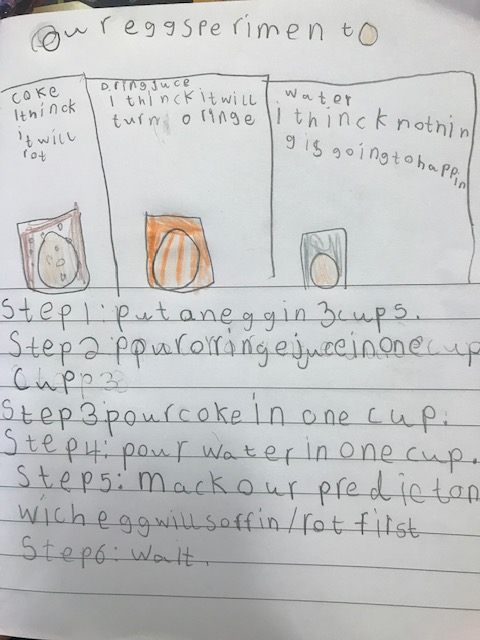 Our eggsperiment
coke
I thinck
it will
rot
Oringjuce
I thinck it will
turn oringe
water
i thinck nothin
g is going to happin
Step1: put an egg in 3 cups.
Step2 ppour orringe juce in one cup
Cupp
Step3 pour coke in one cup.
Step4: pour water in one cup.
Step5: Mack our predicton
wich egg will soffin/rot first
Step6: Wait.